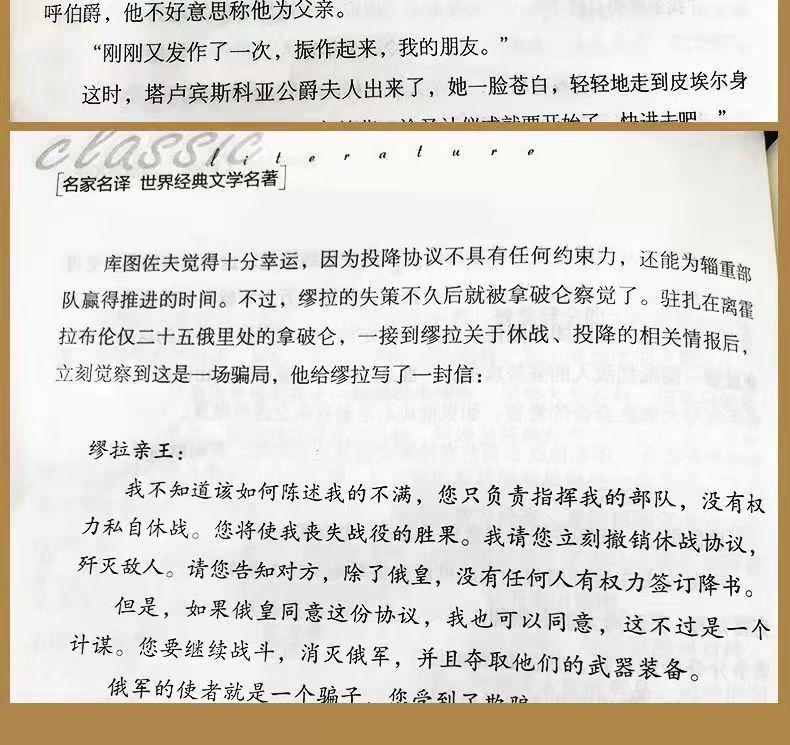 呼伯爵，他不好意思称他为父亲。
“刚刚又发作了一次，振作起来，我的朋友。”
这时，塔卢宾斯科亚公爵夫人出来了，她一脸苍白，轻轻地走到皮埃尔身
仪式就要开始了，快进去吧。”
classic
literature
[名家名译 世界经典文学名著]
库图佐夫觉得十分幸运，因为投降协议不具有任何约束力，还能为辎重部
队赢得推进的时间。不过，缪拉的失策不久后就被拿破仑察觉了。驻扎在离霍
拉布伦仅二十五俄里处的拿破仑，一接到缪拉关于休战、投降的相关情报后，
立刻觉察到这是一场骗局，他给缪拉写了一封信：
缪拉亲王：
我不知道该如何陈述我的不满，您只负责指挥我的部队，没有权
力私自休战。您将使我丧失战役的胜果。我请您立刻撤销休战协议，
歼灭敌人。请您告知对方，除了俄皇，没有任何人有权力签订降书。
但是，如果俄皇同意这份协议，我也可以同意，这不过是一个
计谋。您要继续战斗，消灭俄军，并且夺取他们的武器装备。
俄军的使者就是一个骗子，您受到了欺骗